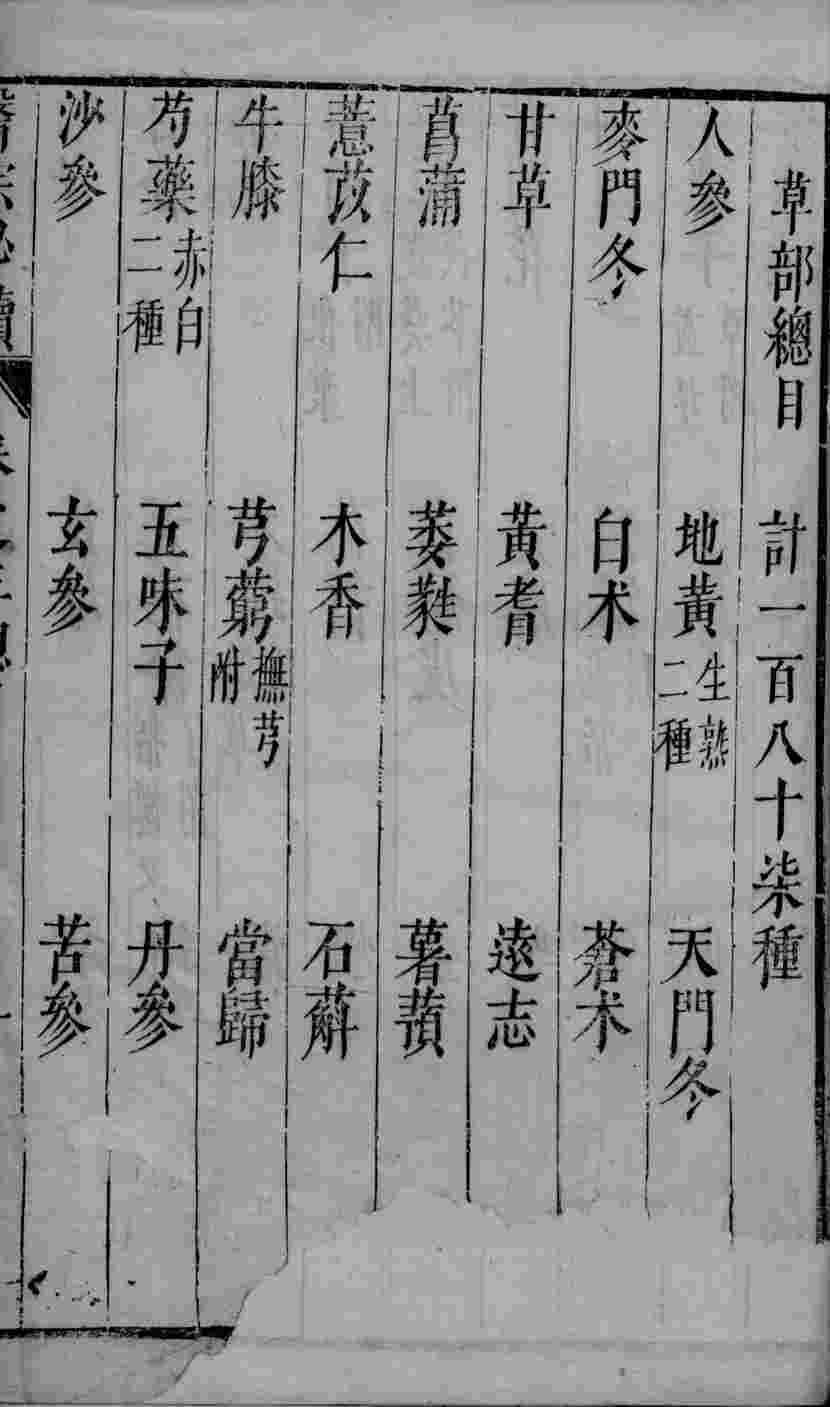 草部總目　計一百八十柒種
人參　地黃生熟二種　天門冬
麥門冬　白朮　蒼朮
甘草　黃耆　遠志
菖蒲　萎蕤　薯蕷
薏苡仁　木香　石斛
牛膝　芎藭撫芎附　當歸
芍藥赤白二種　五味子　丹參
沙參　玄參　苦參